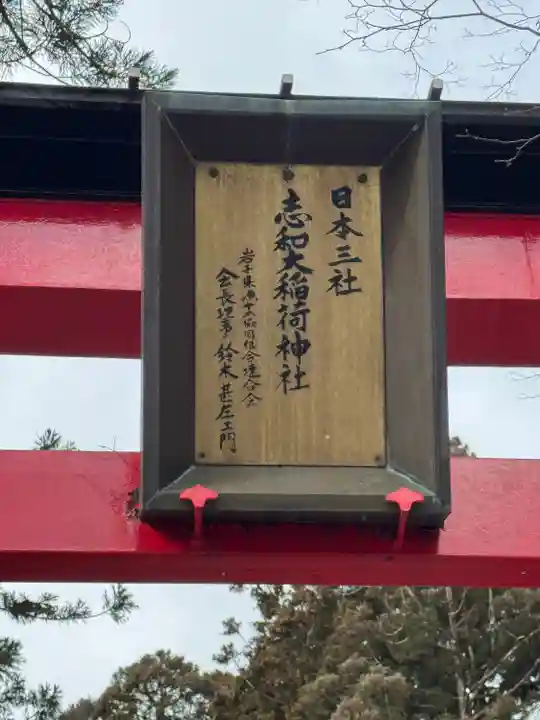 日本三社
志和大稲荷神社
岩手県農業協同組合連合会
会長理事 鈴木甚左エ門